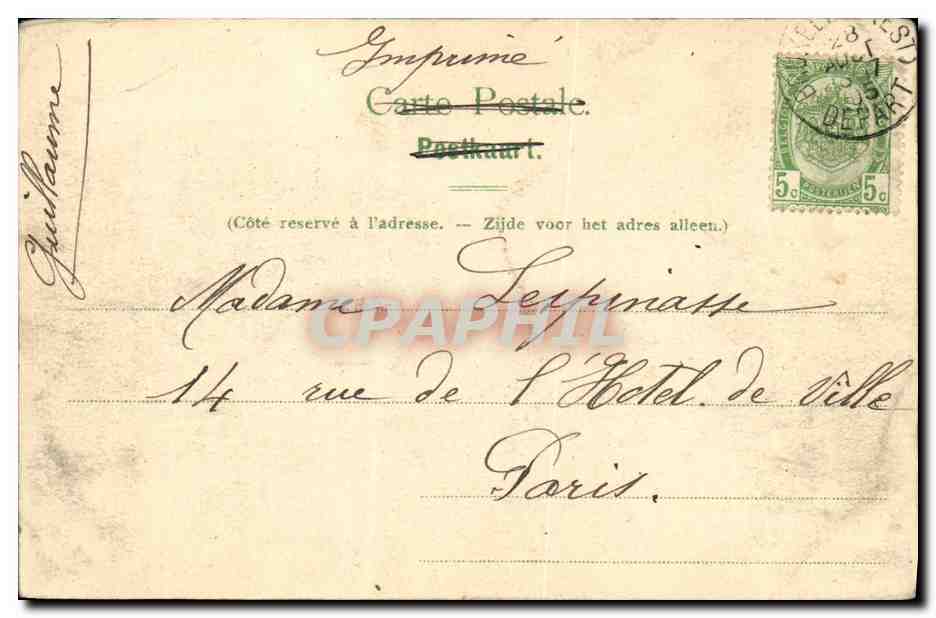 Imprimé
Carte Postale.
Postkaart.
(Côté reservé à l'adresse. — Zijde voor het adres alleen.)
Guillaume
Madame Lespinasse
14 rue de l'Hotel de Ville
Paris.
5c 5c
POSTERIJEN
DEPART
CPAPHIL